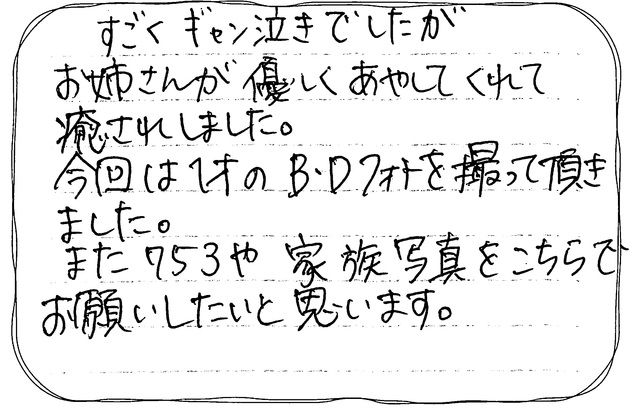 すごくギャン泣きでしたが
お姉さんが優しくあやしてくれて
癒されしました。
今回は1才のB・Dフォトを撮って頂き
ました。
また753や家族写真をこちらで
お願いしたいと思います。